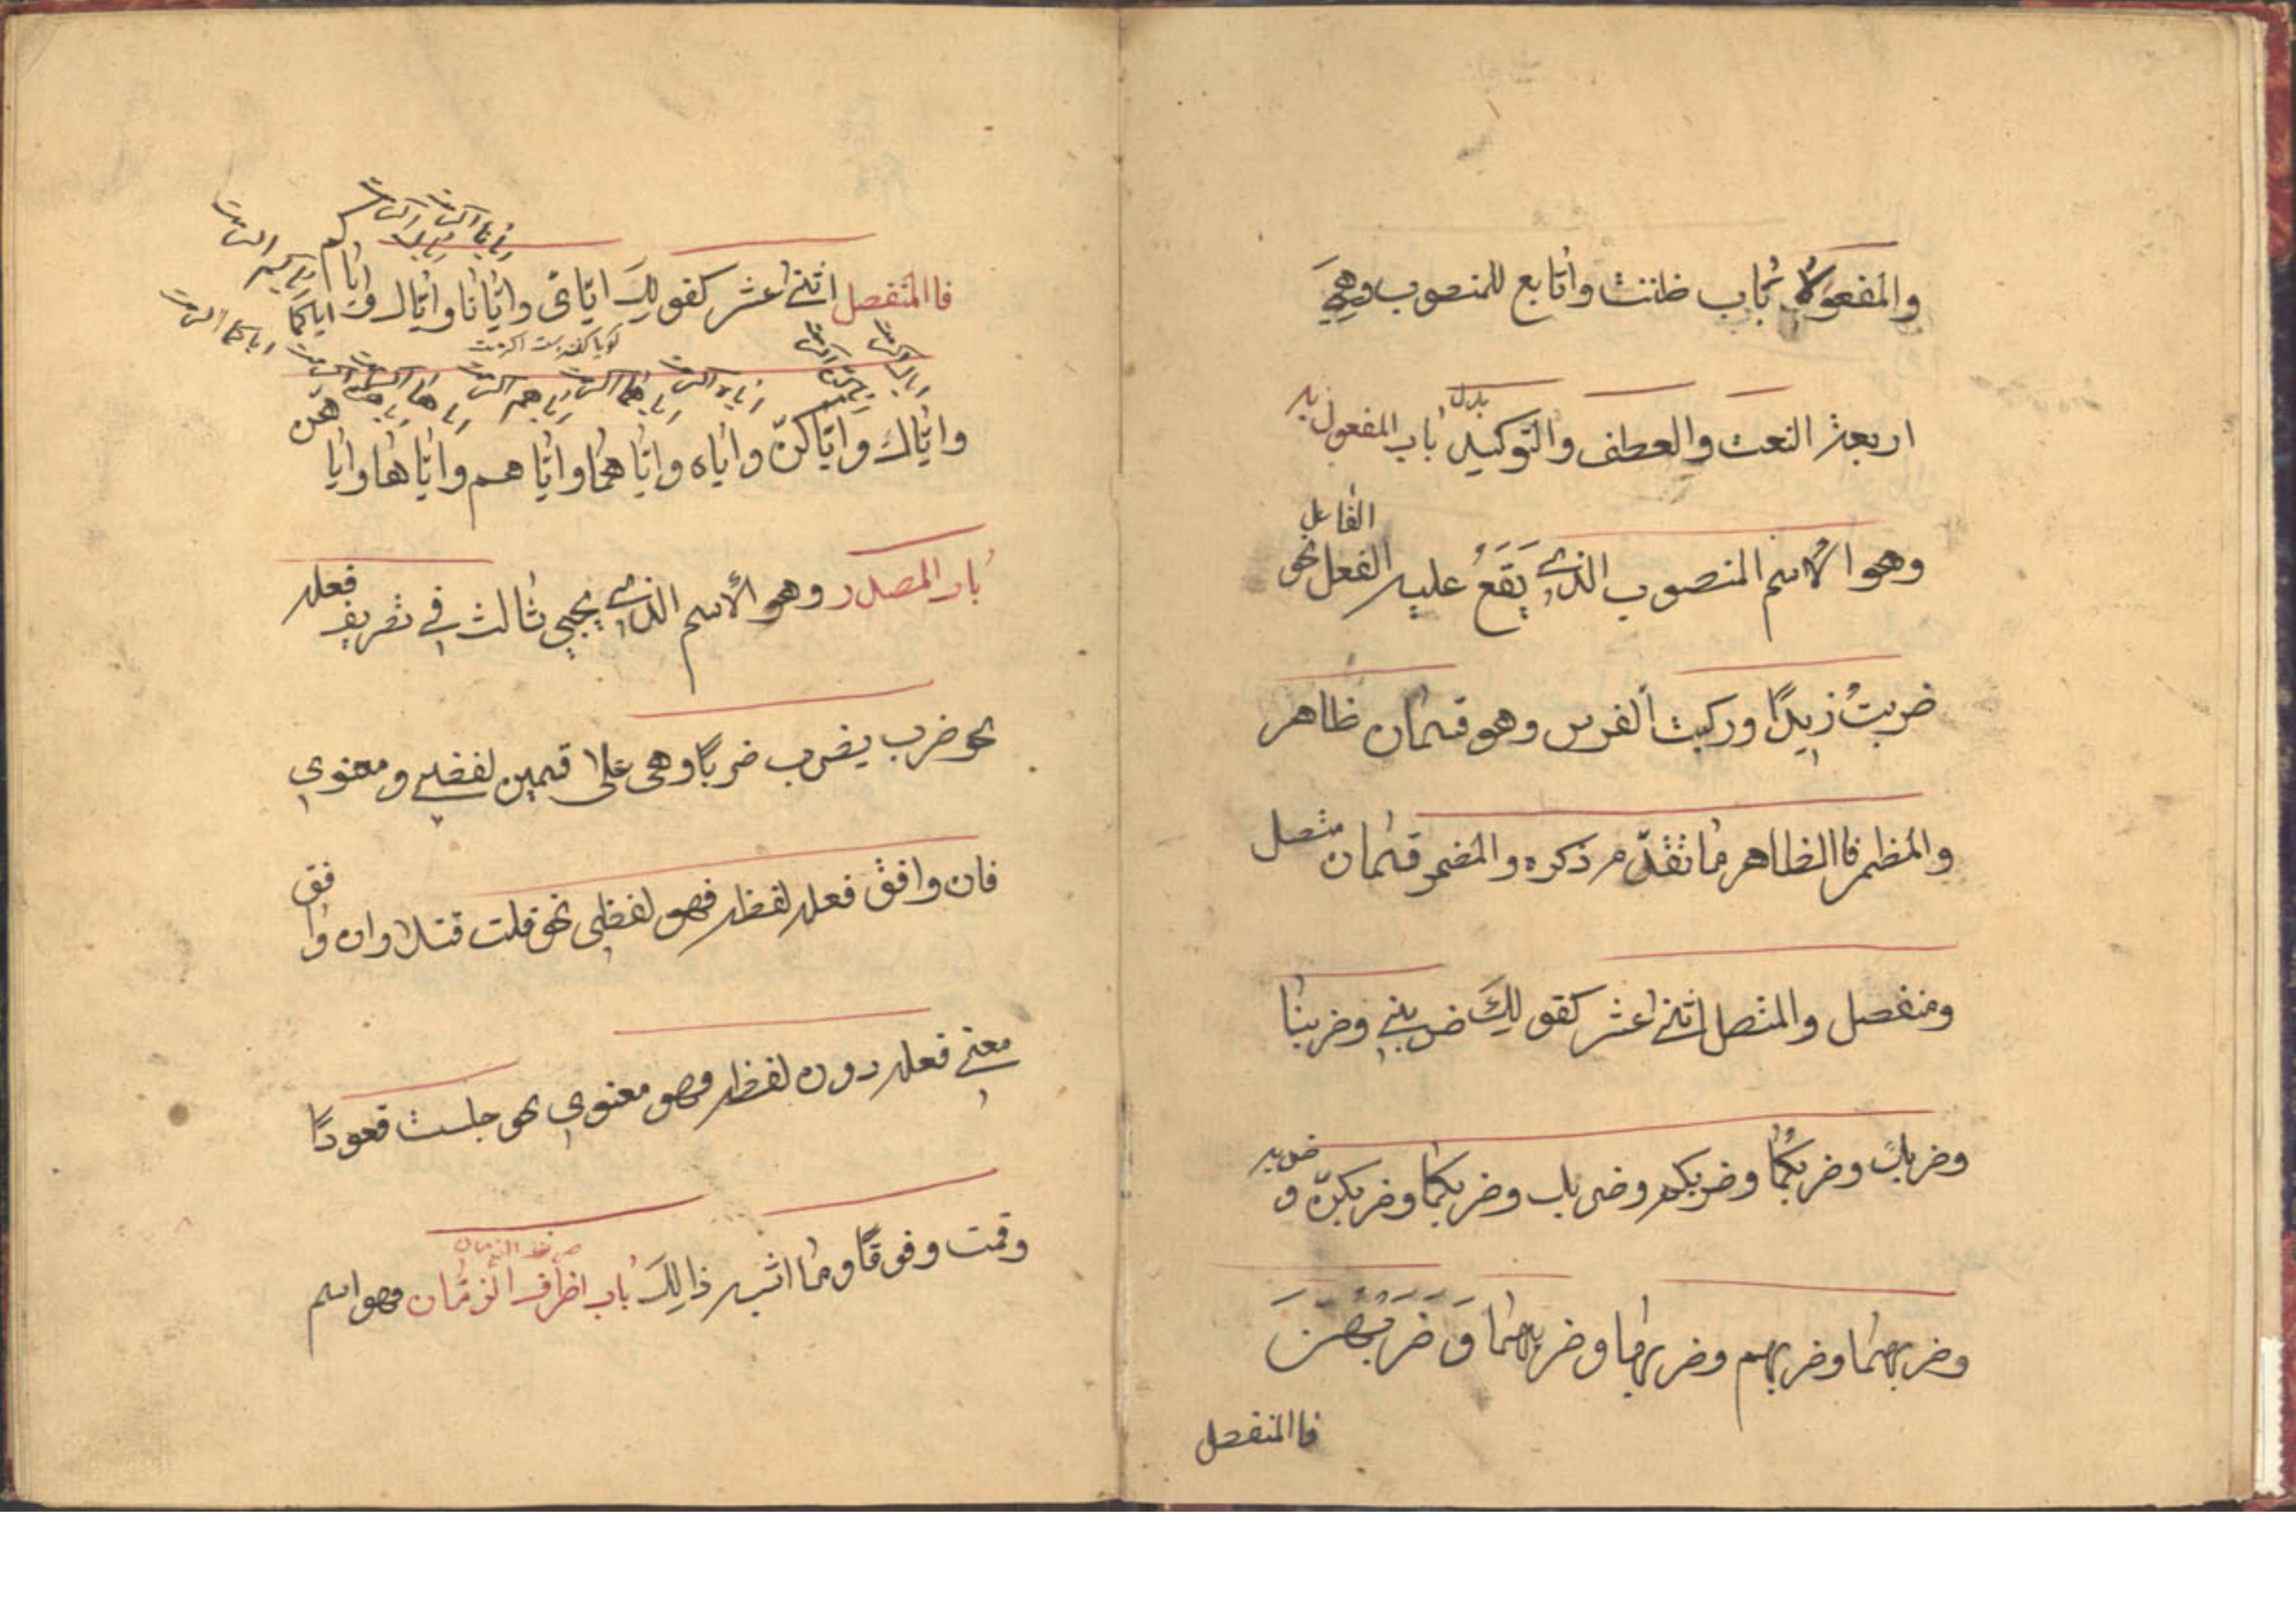 والمفعولا باب ظننت واتابع للمنصوب وهي
اربعة النعت والعطف والتوكيد بدل باب المفعول به
وهو الاسم المنصوب الذي يَقَعُ عليه الفعل الفاعل نحو
ضربتُ زيدًا وركبت الفرس وهو قسمان ظاهر
والمظمر فاالظاهر ما تقدّم ذكره والمضمر قسمان متصل
ومنفصل والمتصل اثنى عشر كقولكَ ضربني وضربنا
وضربكَ وضربكُما وضربكم وضرباب وضربكما وضربكنّ و ضربه
وضربهما وضربهم وضربها وضربهما وَضَرَبَهُنَّ
فاالمنفصل
فاالمنفصل اثنى عشر كقولكَ ايّاىَ وايّانا وايّاك و اياكما اياكم
كويا كفته است اكرمت
وايّاك وايّاكنّ واياه وايّاهما وايّاهم وايّاها وايا هنّ
باب المصدر وهو الأسم الذي يجيي ثالث في تصريف فعله
نحو ضرب يضرب ضربًا وهى على قسمين لفضي ومعنوي
فان وافق فعله لفظه فهو لفظي نحو قلت قتلا وان وافق
معنى فعله دون لفظه فهو معنوي نحو جلست قعودًا
وقمت وقوقًا وما اشبه ذالِكَ باب اظرف الزمان فهو اسم